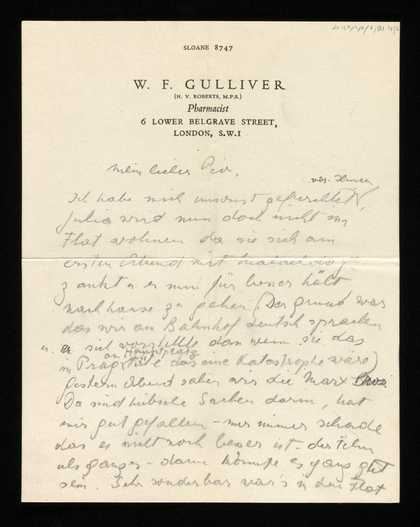 SLOANE 8747
W. F. GULLIVER
(H. V. ROBERTS, M.P.S.)
Pharmacist
6 LOWER BELGRAVE STREET,
LONDON, S.W.1
mein lieber
Ich habe mich umsonst gefürchtet,
wird nun doch nicht im
Flat wohnen da sie sich am
ersten Abend mit
zankt u er nun für besser hält
nachhause zu gehen. (Der grund war
das wir am Bahnhof deutsch sprachen
u. er sich vorstellte dan wenn sie das
am Hauptplatz
in Prag das eine Katastrophe wäre)
gestern Abend sahen wir die Marx
Da sind hübsche Sachen darin, hat
mir gut gefallen - nur immer schade
das es nicht noch besser ist - der Film
als ganzes - dann könnte es ganz gut
sein. Sehr sonderbar war's in der Flat